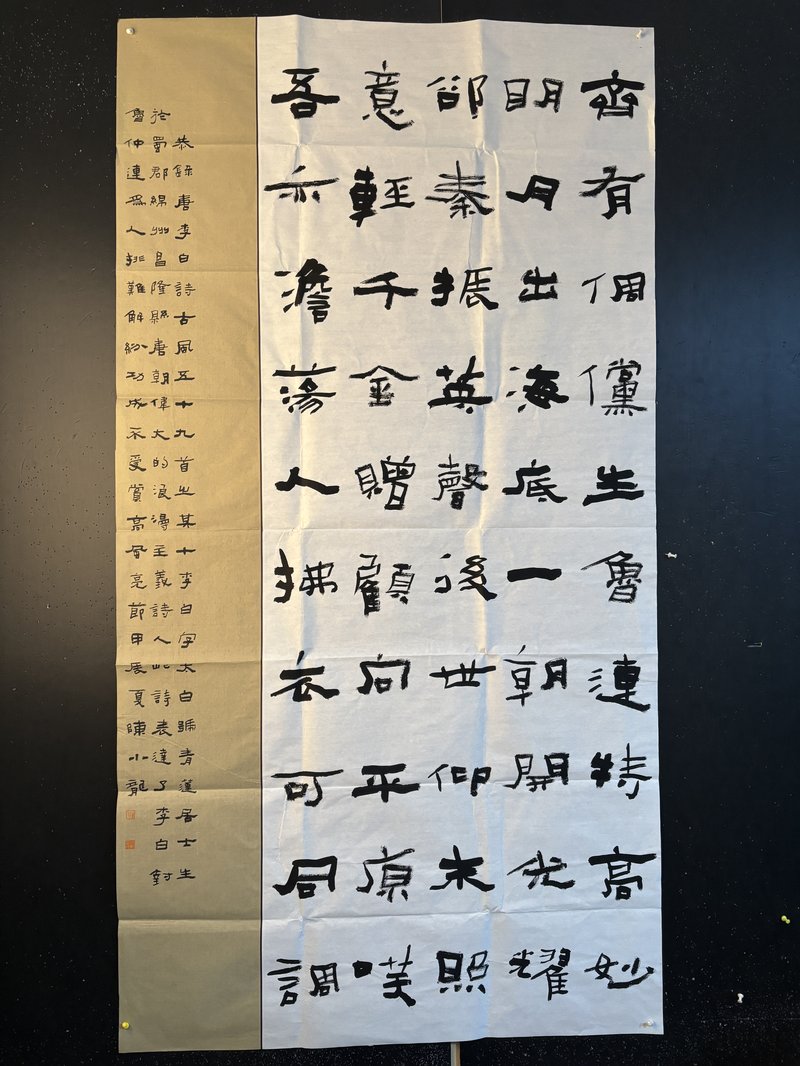 齊有倜儻生魯連特高妙
明月出海底一朝開光耀
卻秦振英聲後世仰末照
意輕千金贈顧向平原咲
吾亦澹蕩人拂衣可同調
恭錄唐李白詩古風五十九首之其十李白字太白號青蓮居士生
於蜀郡綿州昌隆縣唐朝偉大的浪漫主義詩人此詩表達了李白對
魯仲連為人排難解紛功成不受賞高風亮節甲辰夏陳小龍